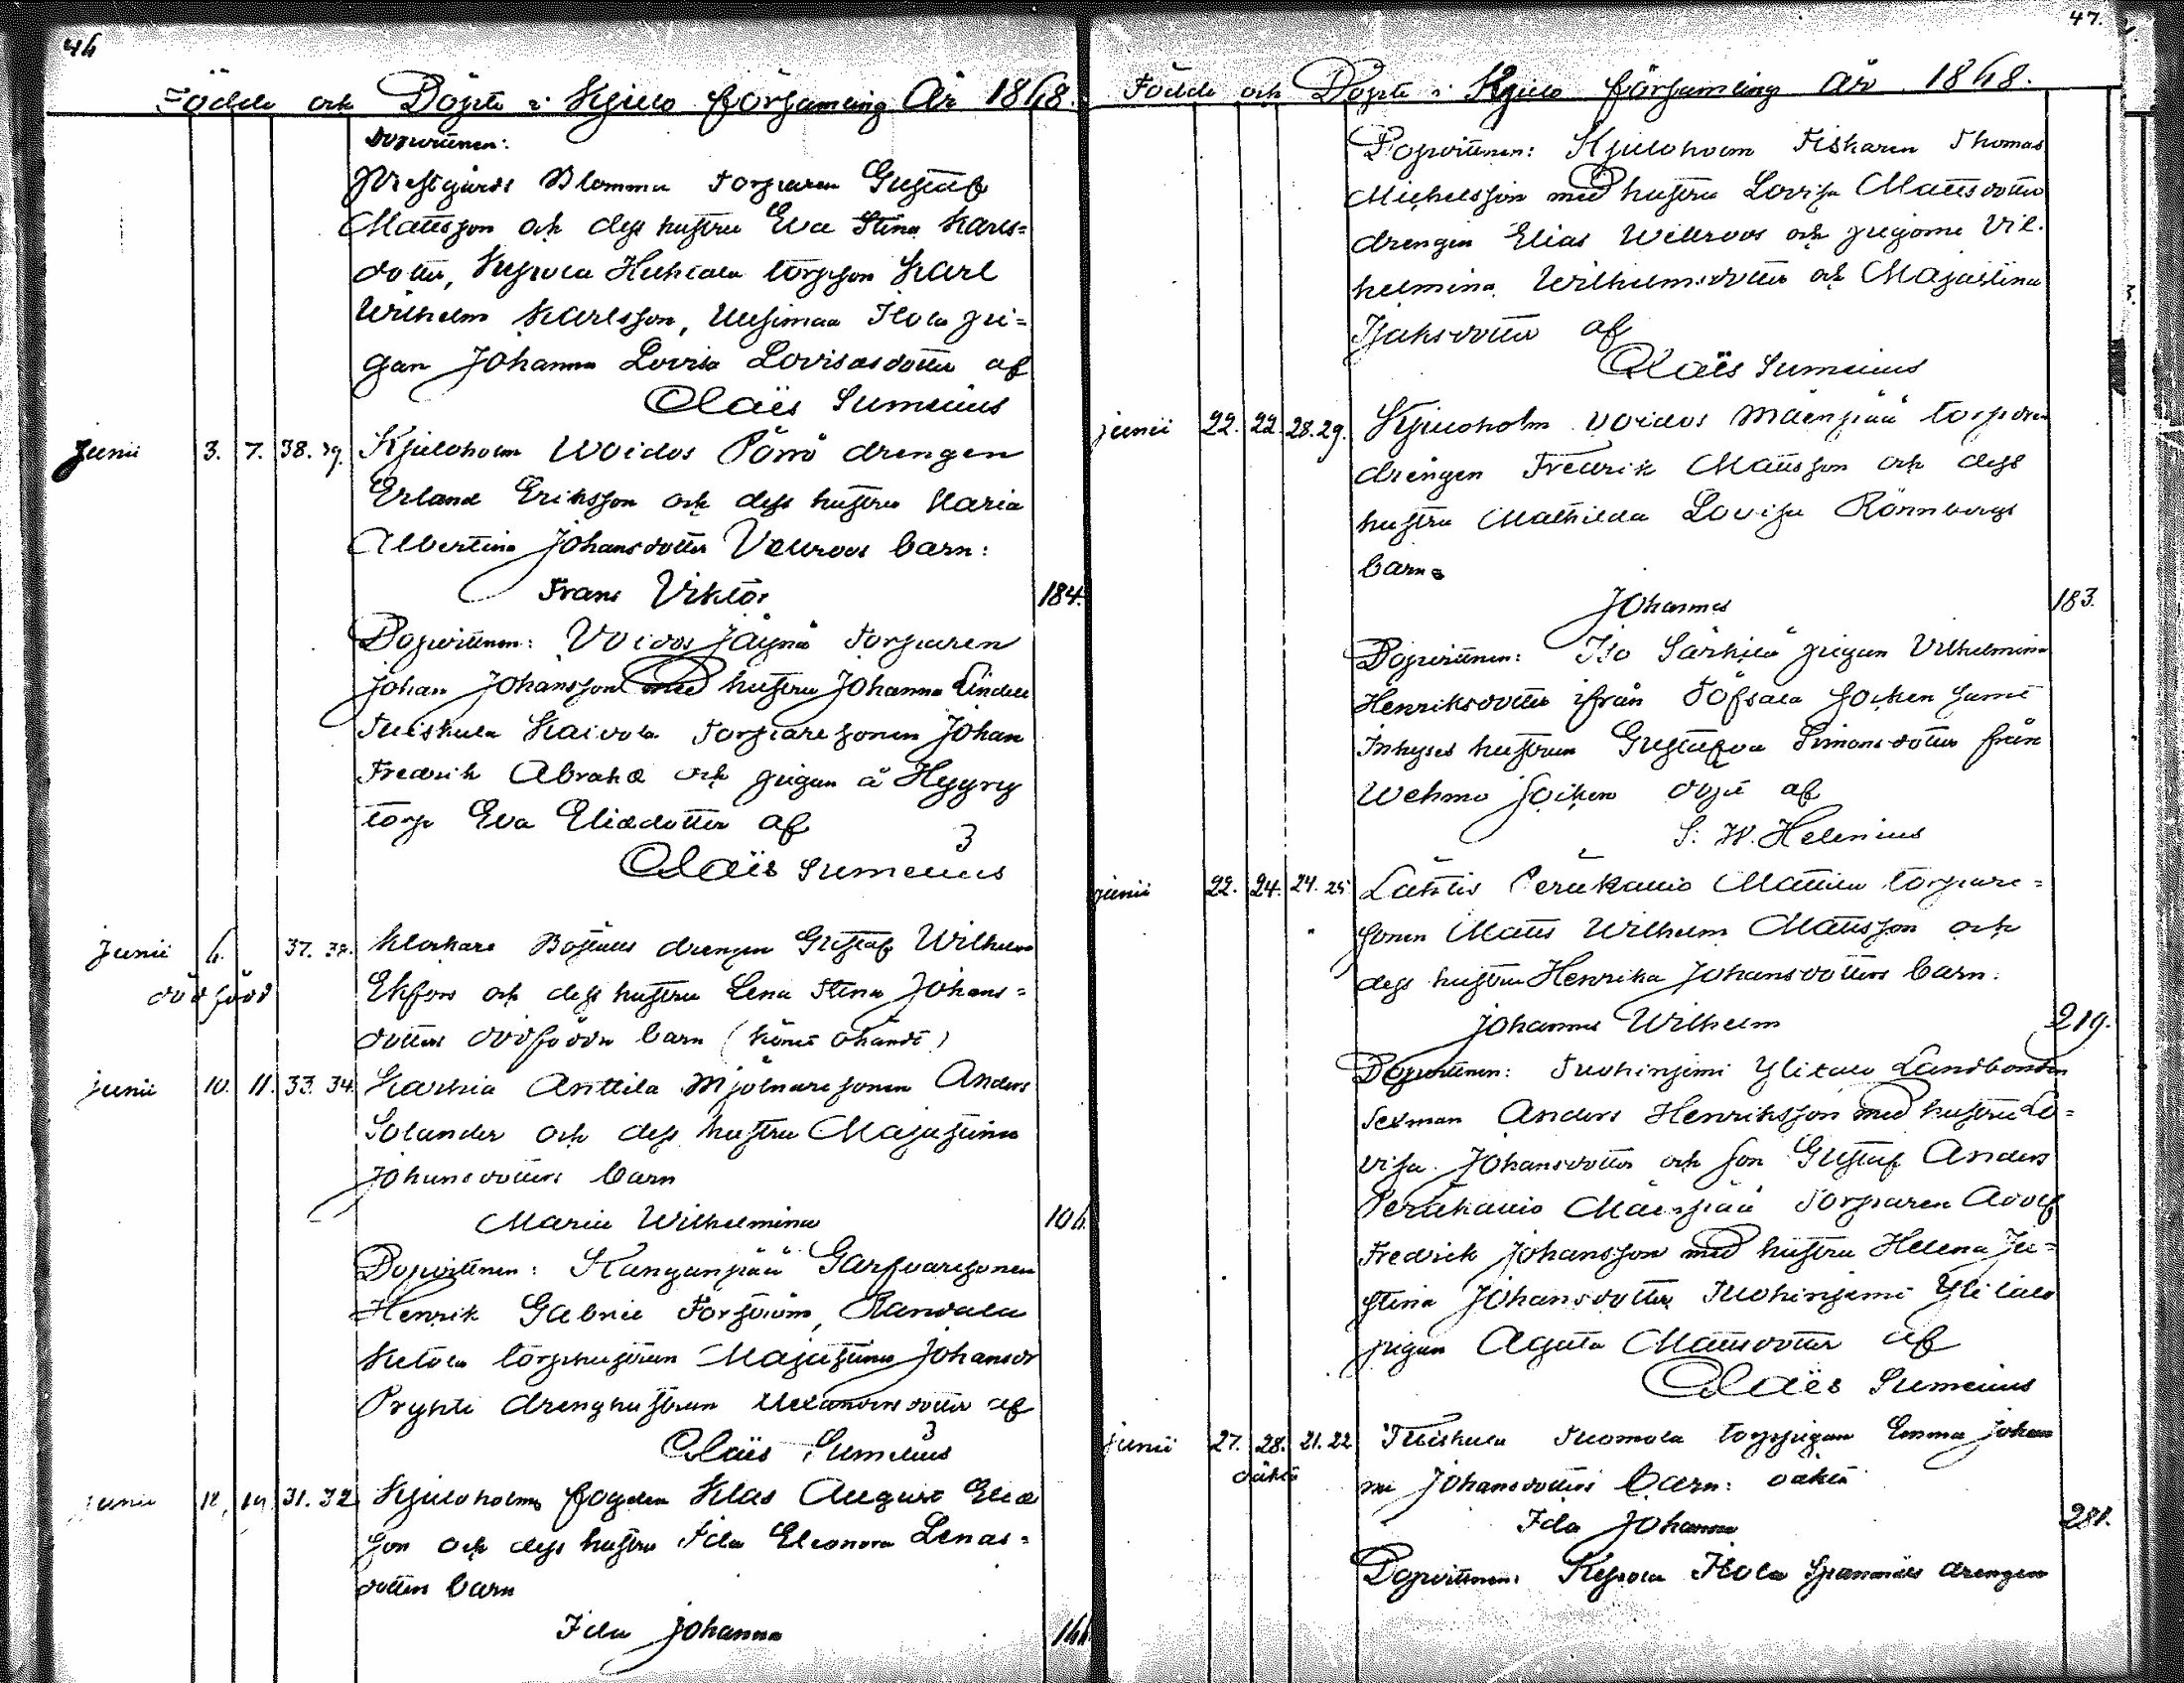 46
Födde och Döpte i Kjulo församling År 1868.
Dopvittnen:
Prestgårds Blomma Torparen Gustaf
Mattsson och dess hustru Eva Stina Karls=
dotter, Karl
Wilhelm Karlsson, Uusimaa Ilola pi=
gan Johanna Lovisa Lovisasdotter af
Claës Sumelius
Junii 3. 7. 38. 39. Kjuloholm Woidos Pörrö drengen
Erland Eriksson och dess hustru Maria
Albertina Johansdotter barn:
Frans Viktor 184.
Dopvittnen: Voidos Torparen
Johan Johansson med hustru Johanna Lindell
Tuiskula Kaivola Torparesonen Johan
Fredrik och pigan å Hyyry
torp Eva af
Claës Sumelius
Junii 6. 37. 38. drengen Gustaf Wilhelm
dödfödd
Ekfors och dess hustru Lena Stina Johans=
dotters dödfödda barn (könet okändt)
Junii 10. 11. 33. 34. Karhia Anttila Mjölnaresonen Anders
Solander och dess hustru Majastina
Johansdotters barn
Maria Wilhelmina 106.
Dopvittnen: Kanganpää Garfvaresonen
Henrik Gabriel Forsström,
Ketola torphustrun Majastina Johansdr
drenghustrun Alexandersdotter af
Claës Sumelius
Junii 12. 14. 31. 32. Kjuloholms fogden Klas August
son och dess hustru Ida Eleonora Lenas=
dotters barn
Ida Johanna 166.
47.
Födde och Döpte i Kjulo församling År 1868.
Dopvittnen: Kjuloholm Fiskaren Thomas
Michelsson med hustru Lovisa Mattsdotter
drengen Elias Wellroos och pigorne Vil-
helmina Wilhelmsdotter och Majastina
Isaksdotter af
Claës Sumelius
Junii 22. 22. 28. 29. Kjuloholm Voidos Mäenpää torpare
drengen Fredrik Mattsson och dess
hustru Mathilda Lovisa Rönnbergs
barn
Johannes 183.
Dopvittnen: Iso Särkilä pigan Vilhelmina
Henriksdotter ifrån Töfsala socken samt
Inhyses hustrun Gustafva Simonsdotter från
Wehmo socken döpt af
S. W. Helenius
Junii 22. 24. 24. 25. Lähtis Peräkallio Mattila torpare=
sonen Matts Wilhelm Mattsson och
dess hustru Henrika Johansdotters barn.
Johannes Wilhelm 219.
Dopvittnen: Tuohiniemi Ylitalo Landbonden
Sexman Anders Henriksson med hustru Lo=
visa Johansdotter och son Gustaf Anders
Peräkallio Mäenpää Torparen Adolf
Fredrik Johansson med hustru Helena Ju=
stina Johansdotter, Tuohiniemi Ylitalo
pigan Agata Mattsdotter af
Claës Sumelius
Junii 27. 28. 21. 22. Tuiskula Tuomola torppigan Emma Johan
oäkta
na Johansdotters barn: oäkta
Ida Johanna 281.
Dopvittnen: Kepola Ilola drengen